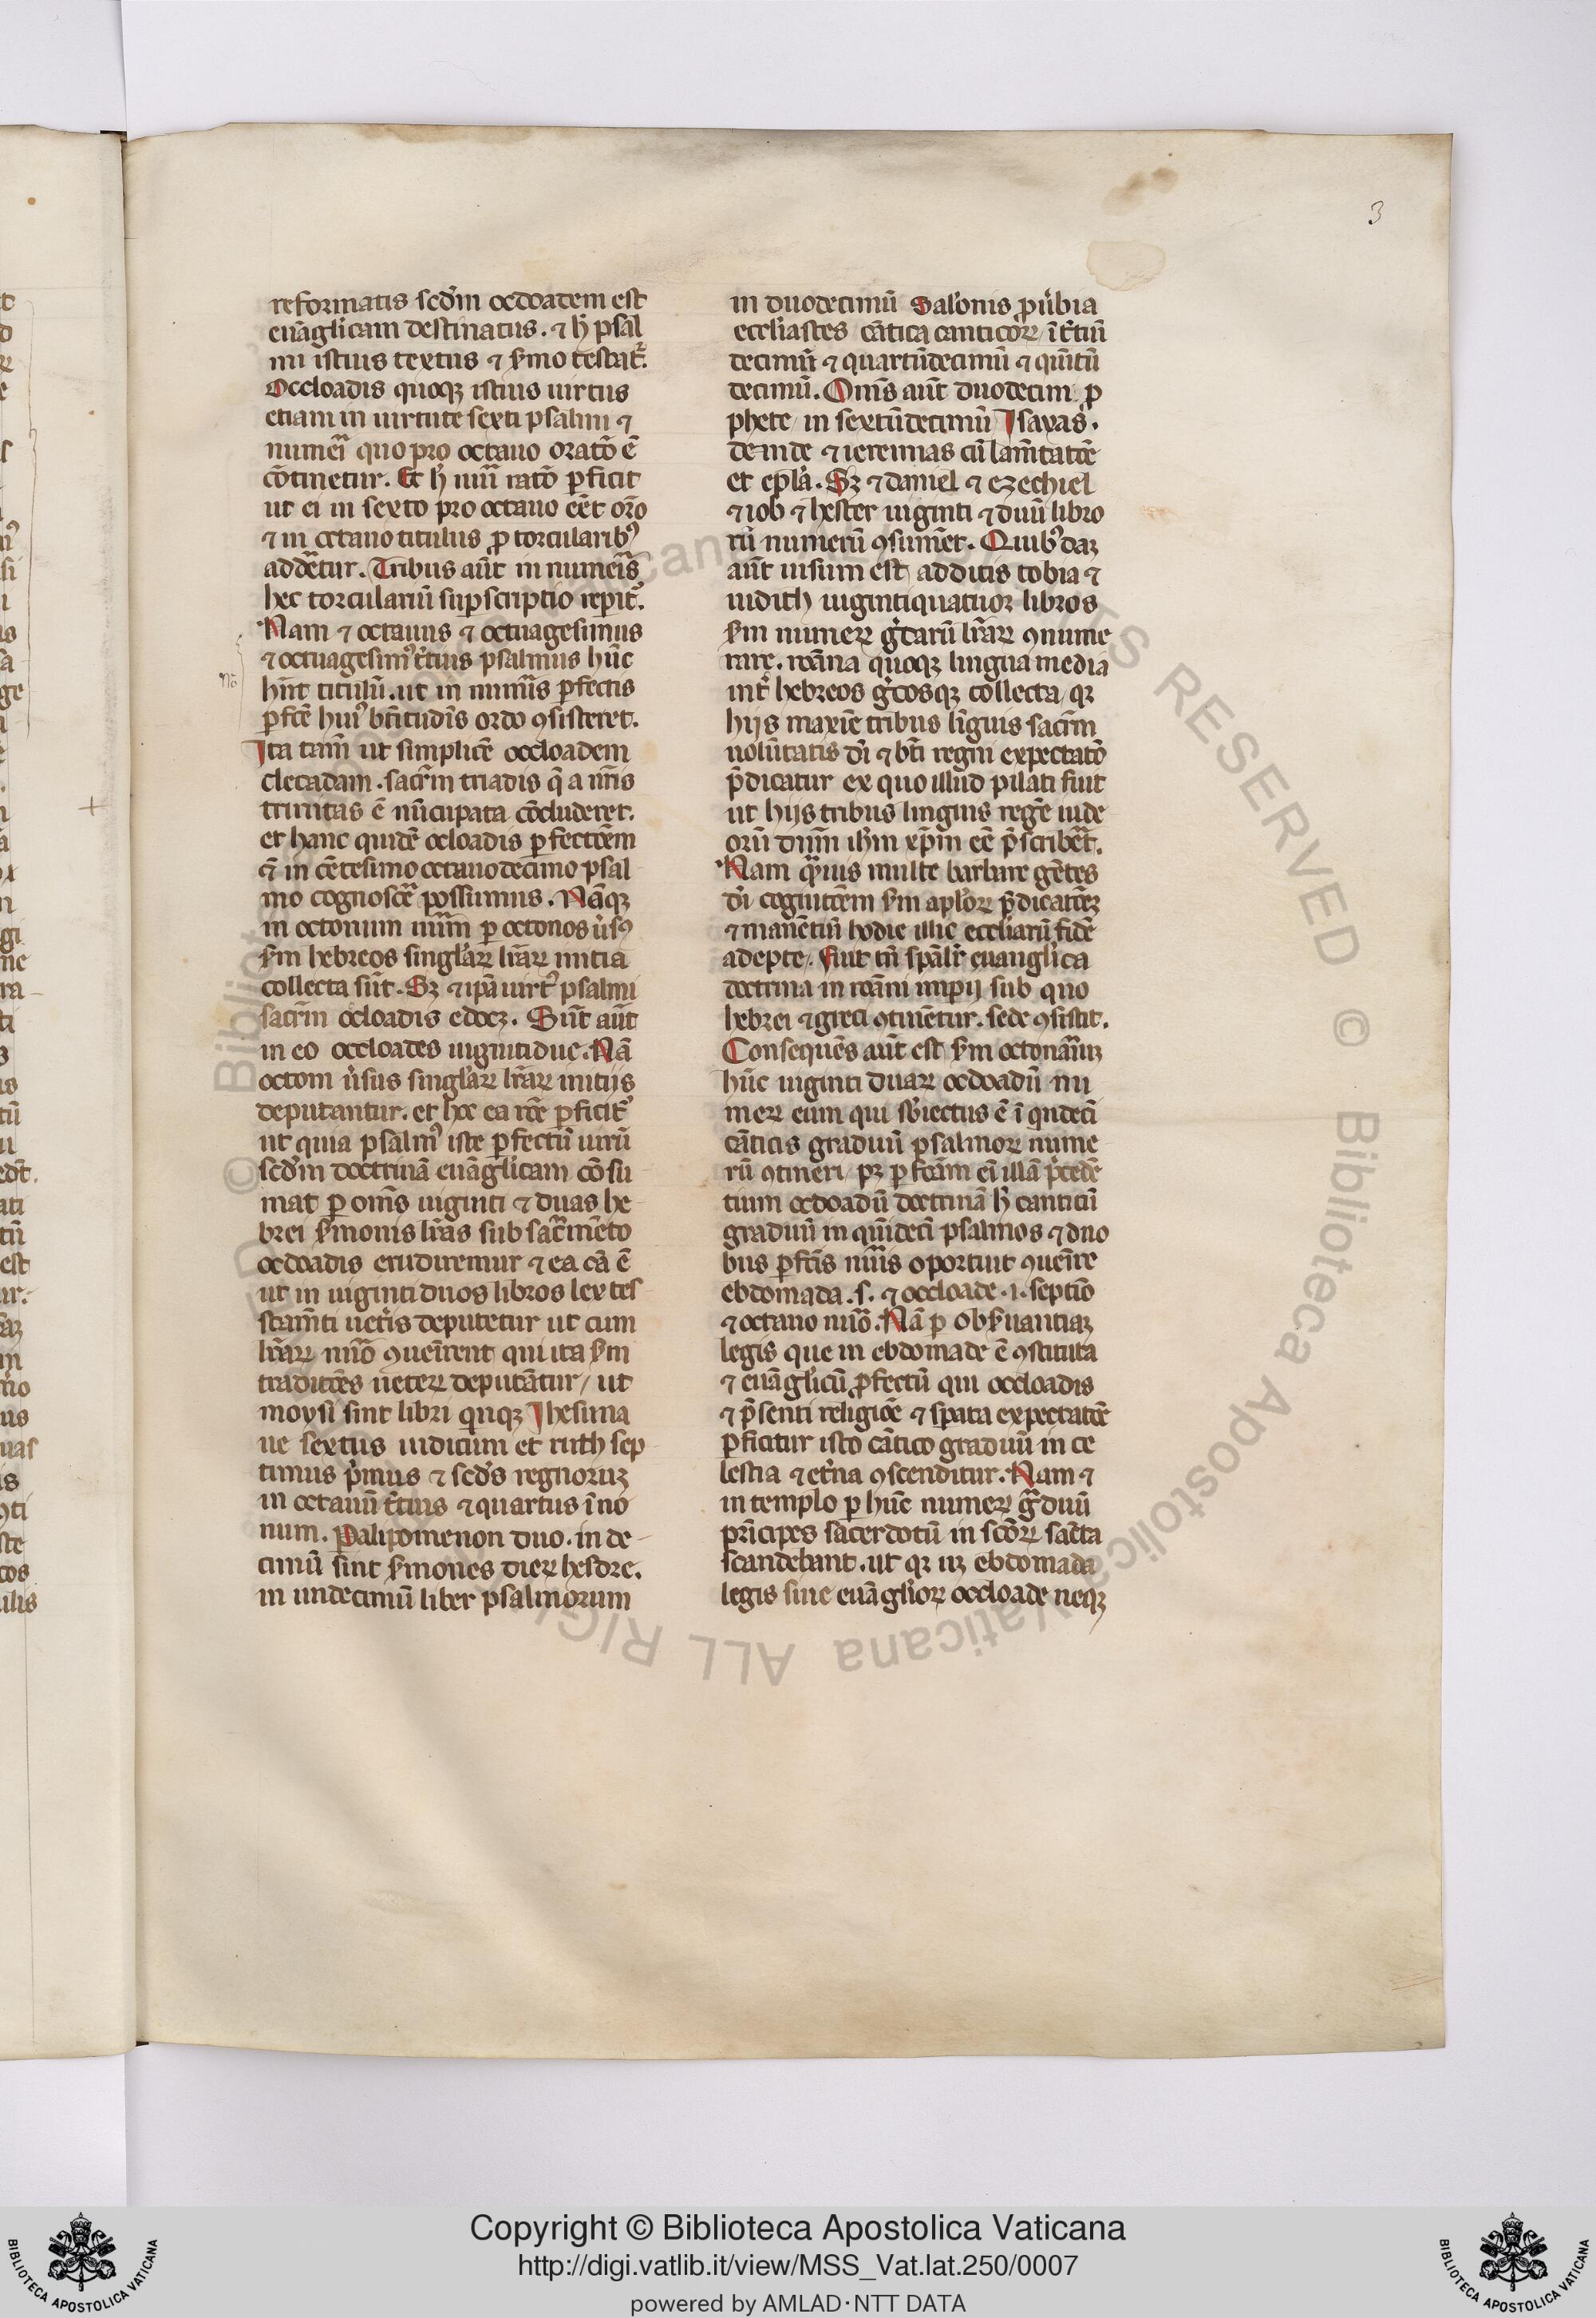 3
reformatis scd̄m ocdoadem est
euāgl̓icam destinatus . ⁊ h̓ psal
mi istius textus ⁊ s̓mo testat̄r.
Occloadis quoqꝫ istius uirtus
etiam in uirtute sexti psalmi ⁊
num̓ei quo pro octauo orat̄o ē
cōtinetur . Et h̓ nūi rat̄o ꝑficit
ut ei in sexto pro octauo eēt or̄o
⁊ in octauo titulus ꝓ torcularib᾽
addētur . Tribus aūt in num̓eis
hec torculariū suꝑscriptio repit᾽.
Nam ⁊ octauus ⁊ octuagesimus
⁊ octuagesim᾽ t̓tius psalmus hūc
hn̄t titulū . ut in num̓is ꝑfectis
ꝑfc̄e hui᾽ bt̄itudīs ordo ꝯsisteret .
Ita tam̄ ut simplicē occloadem
clecadam . sacr̄m triadis q̄ a nr̄is
trinitas ē nūcupata cōcluderet .
et hanc quidē ocloadis ꝑfectōem
⁊ in cētesimo octauodecimo psal
mo cognosc̄e possumus . Nāqꝫ
in octonum nūm ꝑ octonos u̓s᾽
s̄m hebreos singl̓aꝝ lr̄aꝝ initia
collecta sūt . Sꝫ ⁊ ip̄a uirt᾽ psalmi
sacr̄m ocloadis edocꝫ . Sūt aūt
in eo occloades uigintiduc . Nā
octom u̓sus singl̓aꝝ lr̄aꝝ initijs
deputantur . et hoc ea rōe ꝑficit᾽
ut quia psalm᾽ iste ꝑfectū uirū
scd̄m doctrinā euāgl̓icam cōsu
mat ꝑ omīs uiginti ⁊ duas he
brei s̓monis lr̄as sub sacr̄mēto
ocdoadis erudiremur ⁊ ea cā ē
ut in uiginti duos libros lex tes
stam̄ti uet̓is deputetur ut cum
lr̄aꝝ nūo ꝯuenirent qui ita s̄m
tradit̄oes ueteꝝ deputātur / ut
moysi sint libri qnqꝫ Ihesuna
ue sextus iudicum et ruth sep
timus p̓mus ⁊ scd̓s regnoruꝫ
in octauū t̓tius ⁊ quartus ī no
num . Palipomenon duo . in de
cimū sint s̓mones dieꝝ hesdre .
in undecimū liber psalmorum
in duodecimū Sal̓onis ꝓu̓bia
eccl̓iastes cātica canticoꝝ / ī t̓tiū
decimū ⁊ quartūdecimū ⁊ quītū
decimū . Om̄s aūt duodecim ꝓ
phete / in sextūdecimū Isayas .
deinde ⁊ ieremias cū lam̄tatōe
et epl̓a . Sꝫ ⁊ daniel ⁊ ezechiel
⁊ iob ⁊ hester uiginti ⁊ duū libro
rū numerū ꝯsum̄et . Quib᾽daꝫ
aūt uisum est additis tobia ⁊
iudith uigintiquatuor libros
s̄m numeꝝ g̓carū lr̄aꝝ ꝯnume
rare . roāna quoqꝫ lingua media
int̓ hebreos g̓cosqꝫ collecta / qꝛ
hijs maxīe tribus līguis sacr̄m
uolūtatis dī ⁊ bt̄i regni expectatō
p̄dicatur ex quo illud pilati fuit
ut hijs tribus linguis regē iude
orū dn̄m ih̄m xp̄m eē p̄scrib̄et .
Nam qͣuis multe barbare gētes
dī cognitōem s̄m apl̓oꝝ p̄dicatōeꝫ
⁊ manētiū hodie illic eccl̓iarū fidē
adepte . Fuit tn̄ spāl̓r euangl̓ica
doctrina in roāni imꝑij sub quo
hebrei ⁊ greci ꝯtinētur . sede ꝯsistit .
Consequēs aūt est s̄m octonaͣriuꝫ
hūc uiginti duaꝝ ocdoadū nu
meꝝ eum qui sb̓iectus ē ī qndeci
cāticis graduū psalmoꝝ nume
rū ꝯtineri / pꝫ ꝑfcām ei illā p̓cedē
tium ocdoadū doctrinā h̓ canticū
graduū in quīdeci psalmos ⁊ duo
bus ꝑfc̄is nūis oportuit ꝯuenīre
ebdomada . s . ⁊ occloade . i . septīo
⁊ octauo nūo . Nā ꝑ obs̓uantiaꝫ
legis que in ebdomade ē ꝯstituta
⁊ euāgl̓icū ꝓfectū qui occloadis
⁊ p̄senti religiōe ⁊ sꝑata expectatōe
ꝑficitur isto cātico graduū in ce
lestia ⁊ et̓na ꝯscenditur . Nam ⁊
in templo ꝑ hūc numeꝝ gͣduū
pr̄icipes sacerdotū in scōꝝ sācta
scandebant . ut qꝛ uꝫ ebdomada
legis sine euāgl̓ioꝝ occloade neqꝫ
Copyright © Biblioteca Apostolica Vaticana
http://digi.vatlib.it/view/MSS_Vat.lat.250/0007
powered by AMLAD·NTT DATA